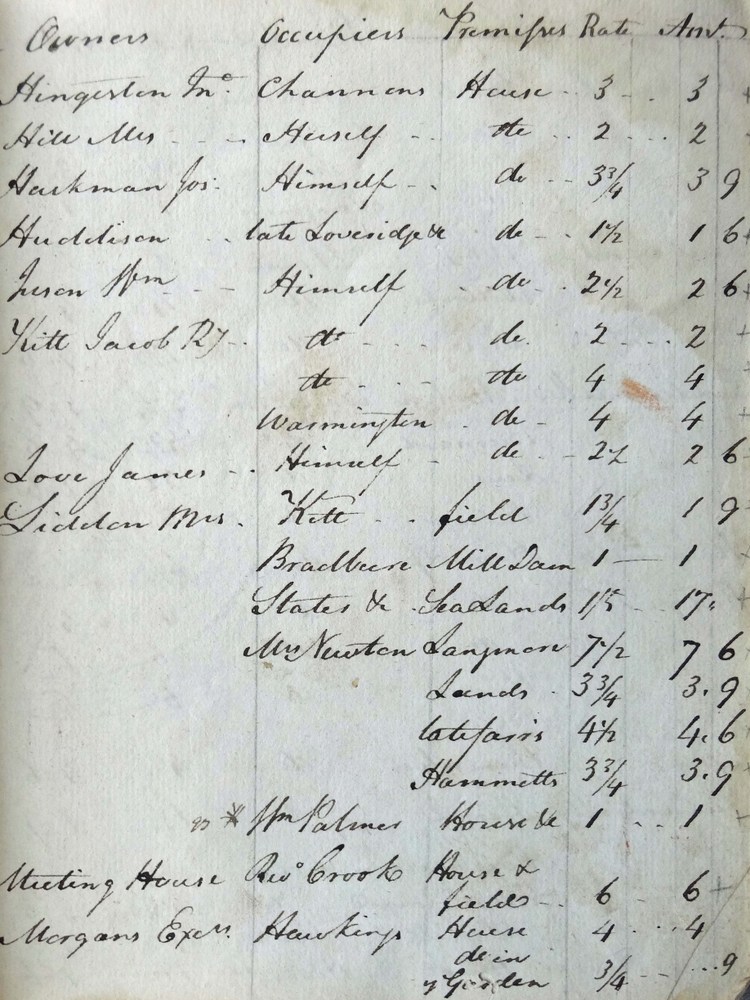 Owners Occupiers Premises Rate Amt.
Hingerston Jno. Channons House 3 3
Hill Mrs Herself do 2 2
Harkman Jos. Himself do 3 3/4 3 9
Huddison late Loveridge &c do 1 1/2 1 6
Juson Wm Himself do 2 1/2 2 6
Kitt Jacob do do 2 2
do do 4 4
Warmington do 4 4
Love James Himself do 2 1/2 2 6
Liddon Mrs. Kitt field 1 3/4 1 9
Bradbeere Mill Dam 1 1
States &c Sea Lands 17
Mrs Newton Langmore 7 1/2 7 6
Lands 3 3/4 3. 9
late 4 1/2 4. 6
Hammetts 3 3/4 3. 9
Wm Palmer House &c 1 1
Meeting House Revd Crook House &
field 6 6
Morgans Exers. Hawkings House 4 4
do in
ye Garden 3/4 9